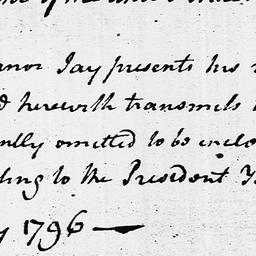 nor Jay presents his
herewith transmits
omitted to be enclo
ding to the President
y 1796 —